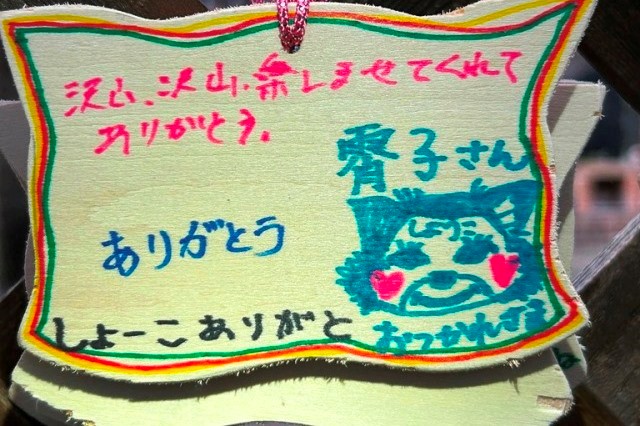 沢山、沢山、楽しませてくれて
ありがとう。
霄子さん
しょうこ
ありがとう
しょーこありがと
おつかれさま